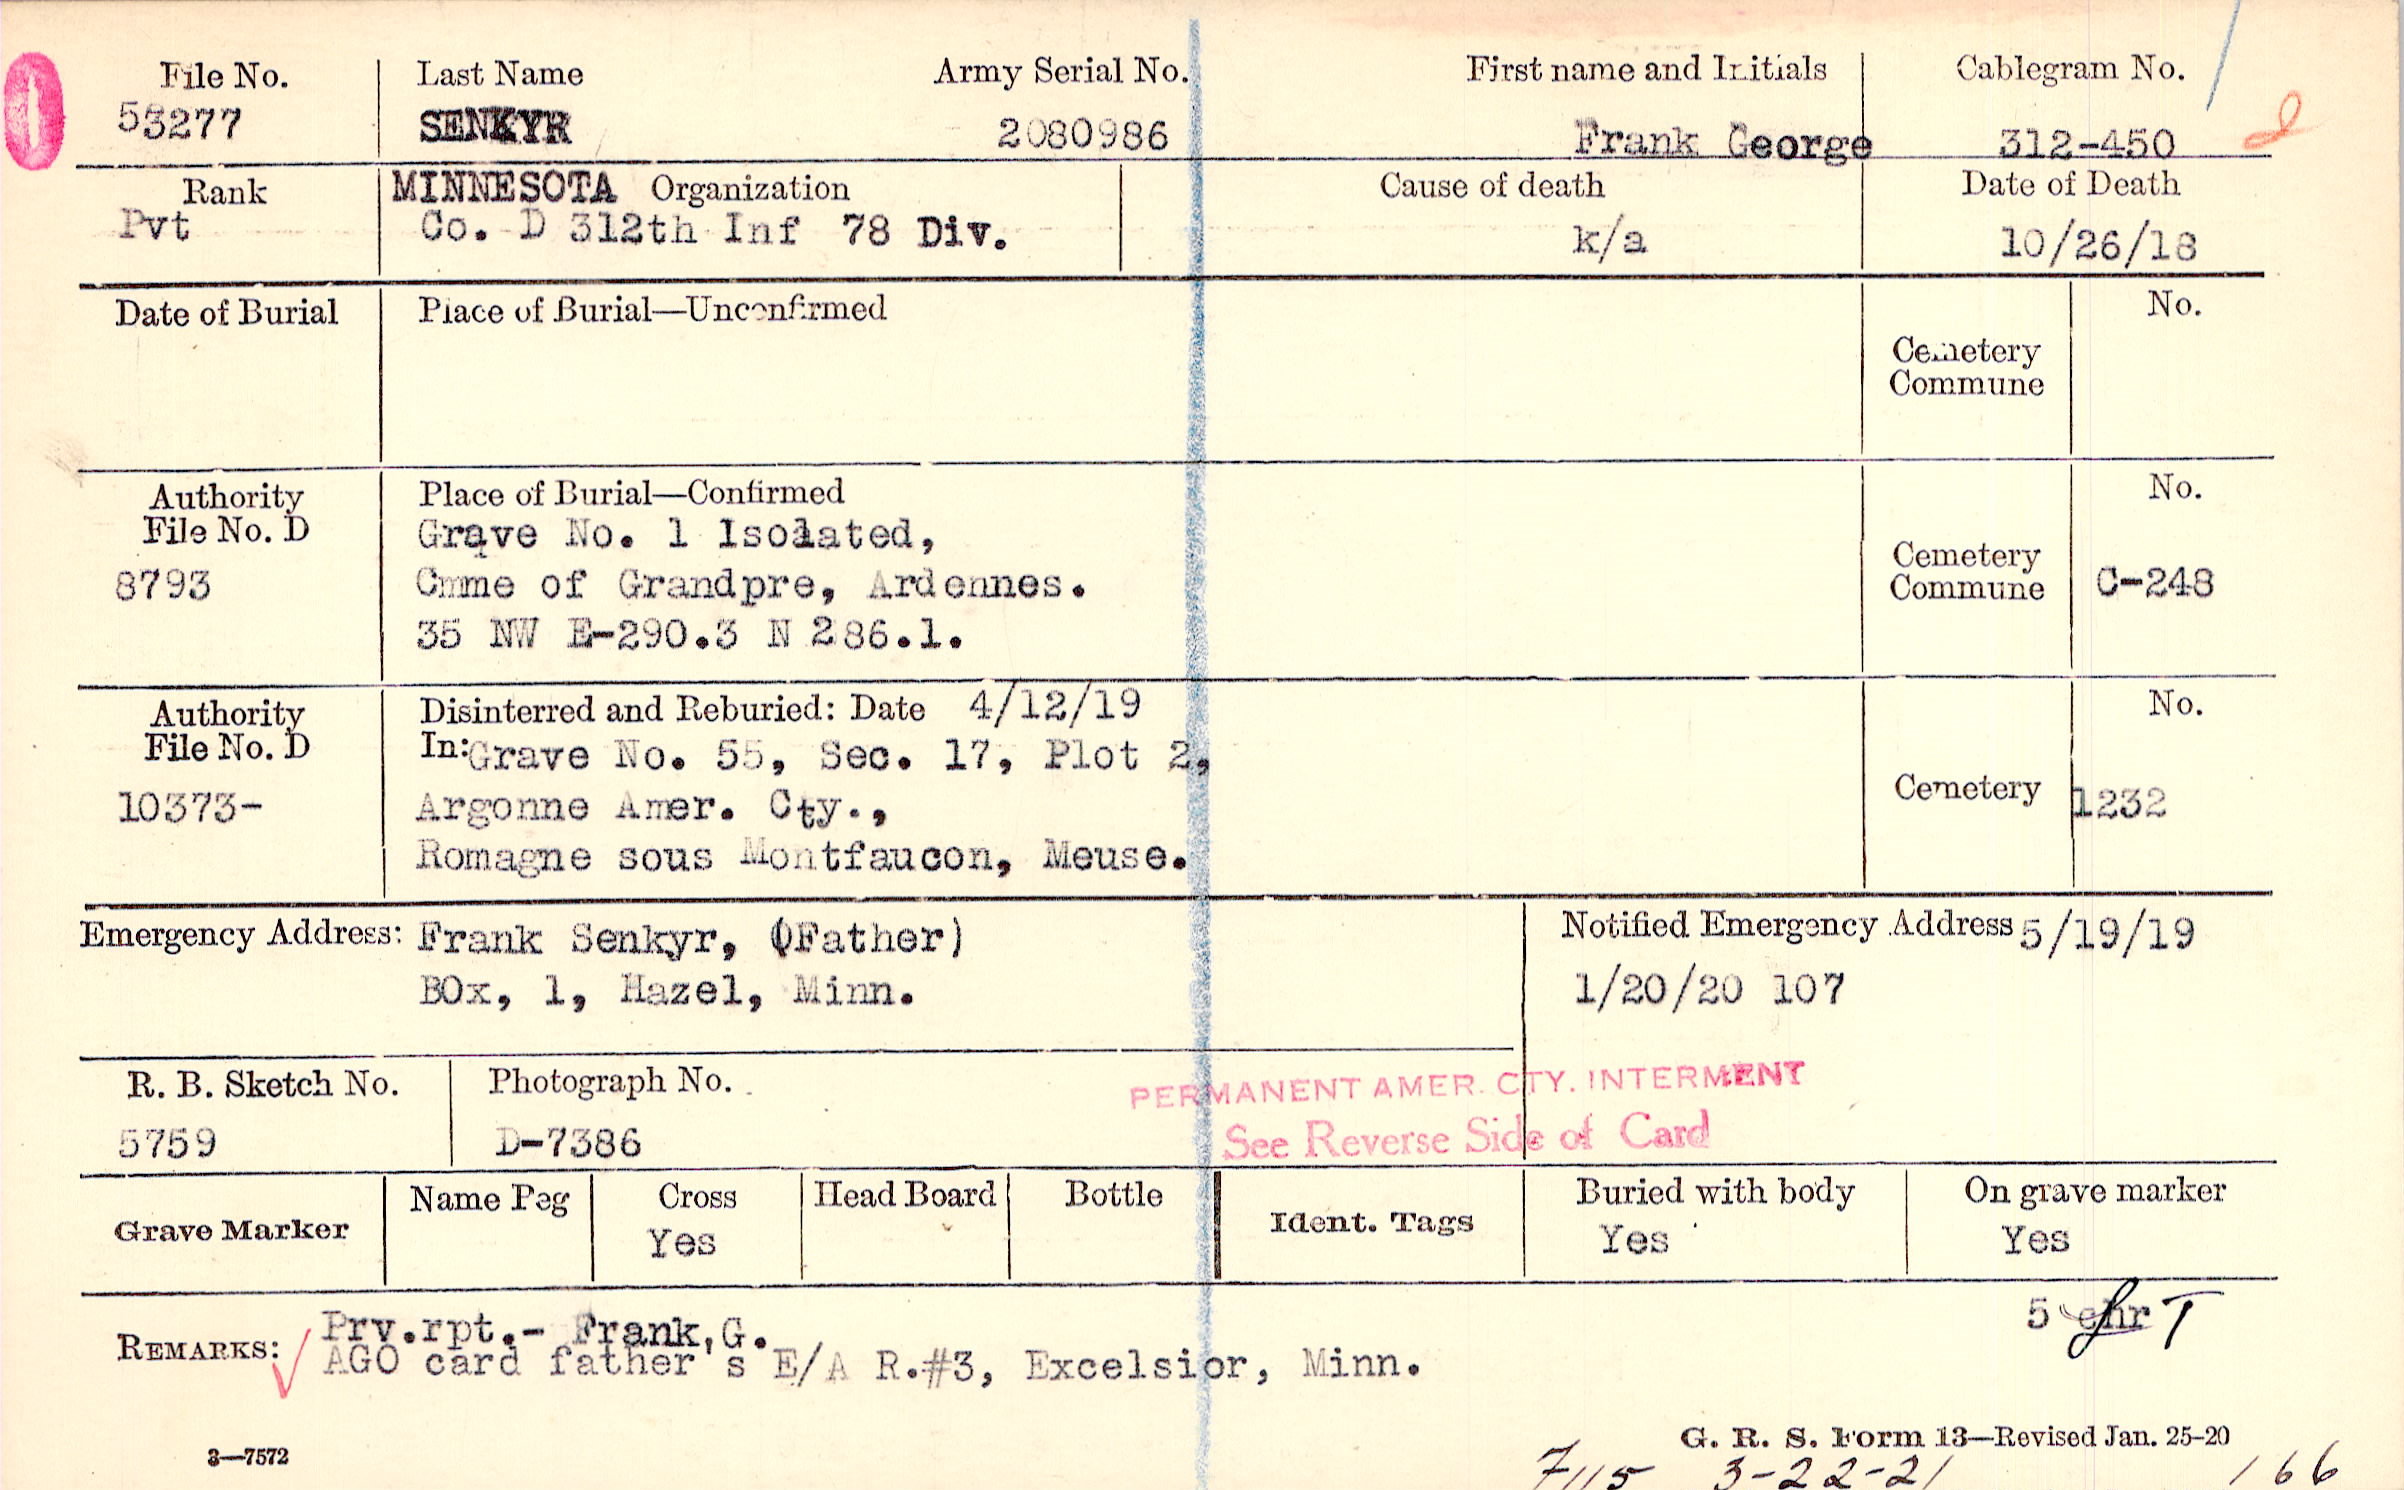 File No. Last Name Army Serial No. First name and Initials Cablegram No.
53277 SENKYR 2080986 Frank George 312-450
Rank MINNESOTA Organization Cause of death Date of Death
Pvt Co. D 312th Inf 78 Div. k/a 10/26/18
Date of Burial Place of Burial—Unconfirmed No.
Cemetery
Commune
Authority Place of Burial—Confirmed No.
File No. D Grave No. 1 Isolated,
8793 Cmme of Grandpre, Ardennes. Cemetery
Commune C-248
35 NW E-290.3 N 286.1.
Authority Disinterred and Reburied: Date 4/12/19 No.
File No. D In: Grave No. 55, Sec. 17, Plot 2,
10373- Argonne Amer. Cty., Cemetery 1232
Romagne sous Montfaucon, Meuse.
Emergency Address: Frank Senkyr, (Father) Notified Emergency Address 5/19/19
BOx, 1, Hazel, Minn. 1/20/20 107
R. B. Sketch No. Photograph No. PERMANENT AMER. CTY. INTERMENT
5759 D-7386 See Reverse Side of Card
Grave Marker Name Peg Cross Head Board Bottle Ident. Tags Buried with body On grave marker
Yes Yes Yes
5 T
REMARKS: Prv.rpt.- Frank,G.
AGO card father's E/A R.#3, Excelsior, Minn.
G. R. S. Form 13—Revised Jan. 25-20
3—7572
7115 3-22-21 166